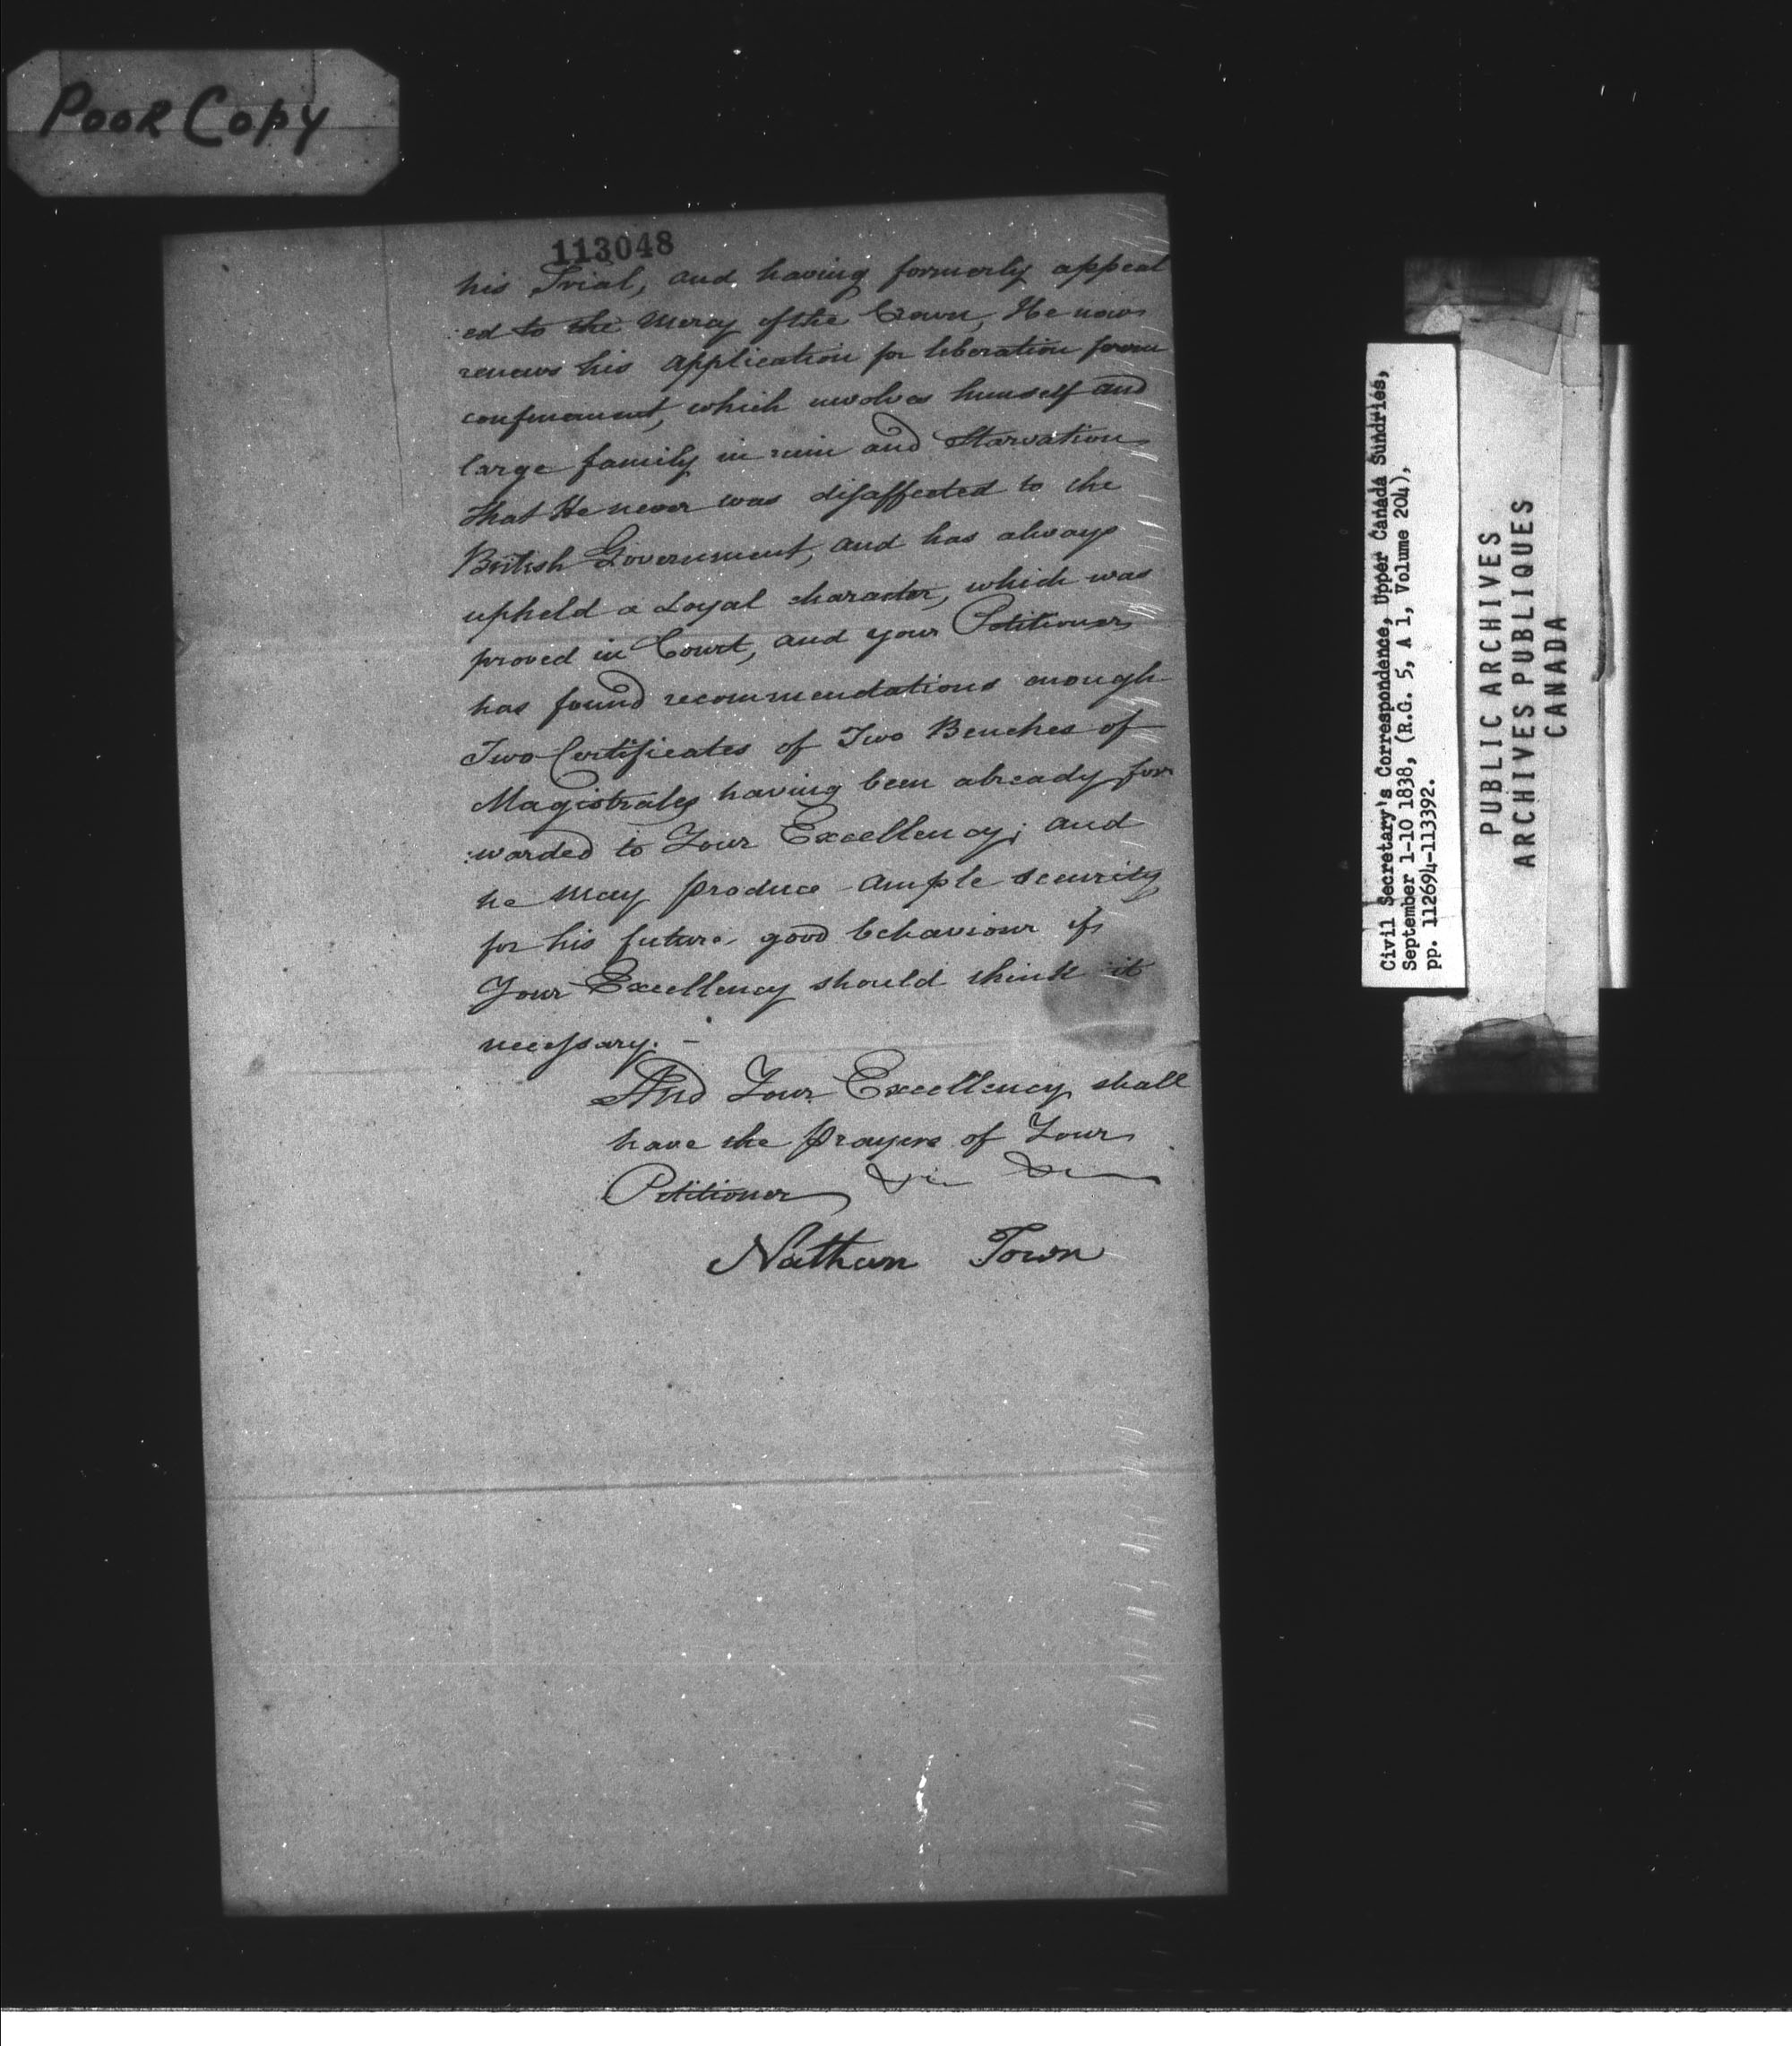 POOR COPY
113048
his Trial, and having formerly appeal
:ed to the Mercy of the Crown, He now
renews his application for liberation from
confinement, which involves himself and
large family in ruin and Starvation
that He never was disaffected to the
British Government, and has always
upheld a Loyal character, which was
proved in Court, and your Petitioner
has found recommendations enough
Two Certificates of Two Benches of
Magistrates having been already for
:warded to Your Excellency; and
he may produce ample security
for his future good behaviour if
Your Excellency should think it
necessary. -
And Your Excellency shall
have the Prayers of Your
Petitioner &c &c
Nathan Town
Civil Secretary's Correspondence, Upper Canada Sundries,
September 1-10 1838, (R.G. 5, A 1, Volume 204),
pp. 112694-113392.
PUBLIC ARCHIVES
ARCHIVES PUBLIQUES
CANADA